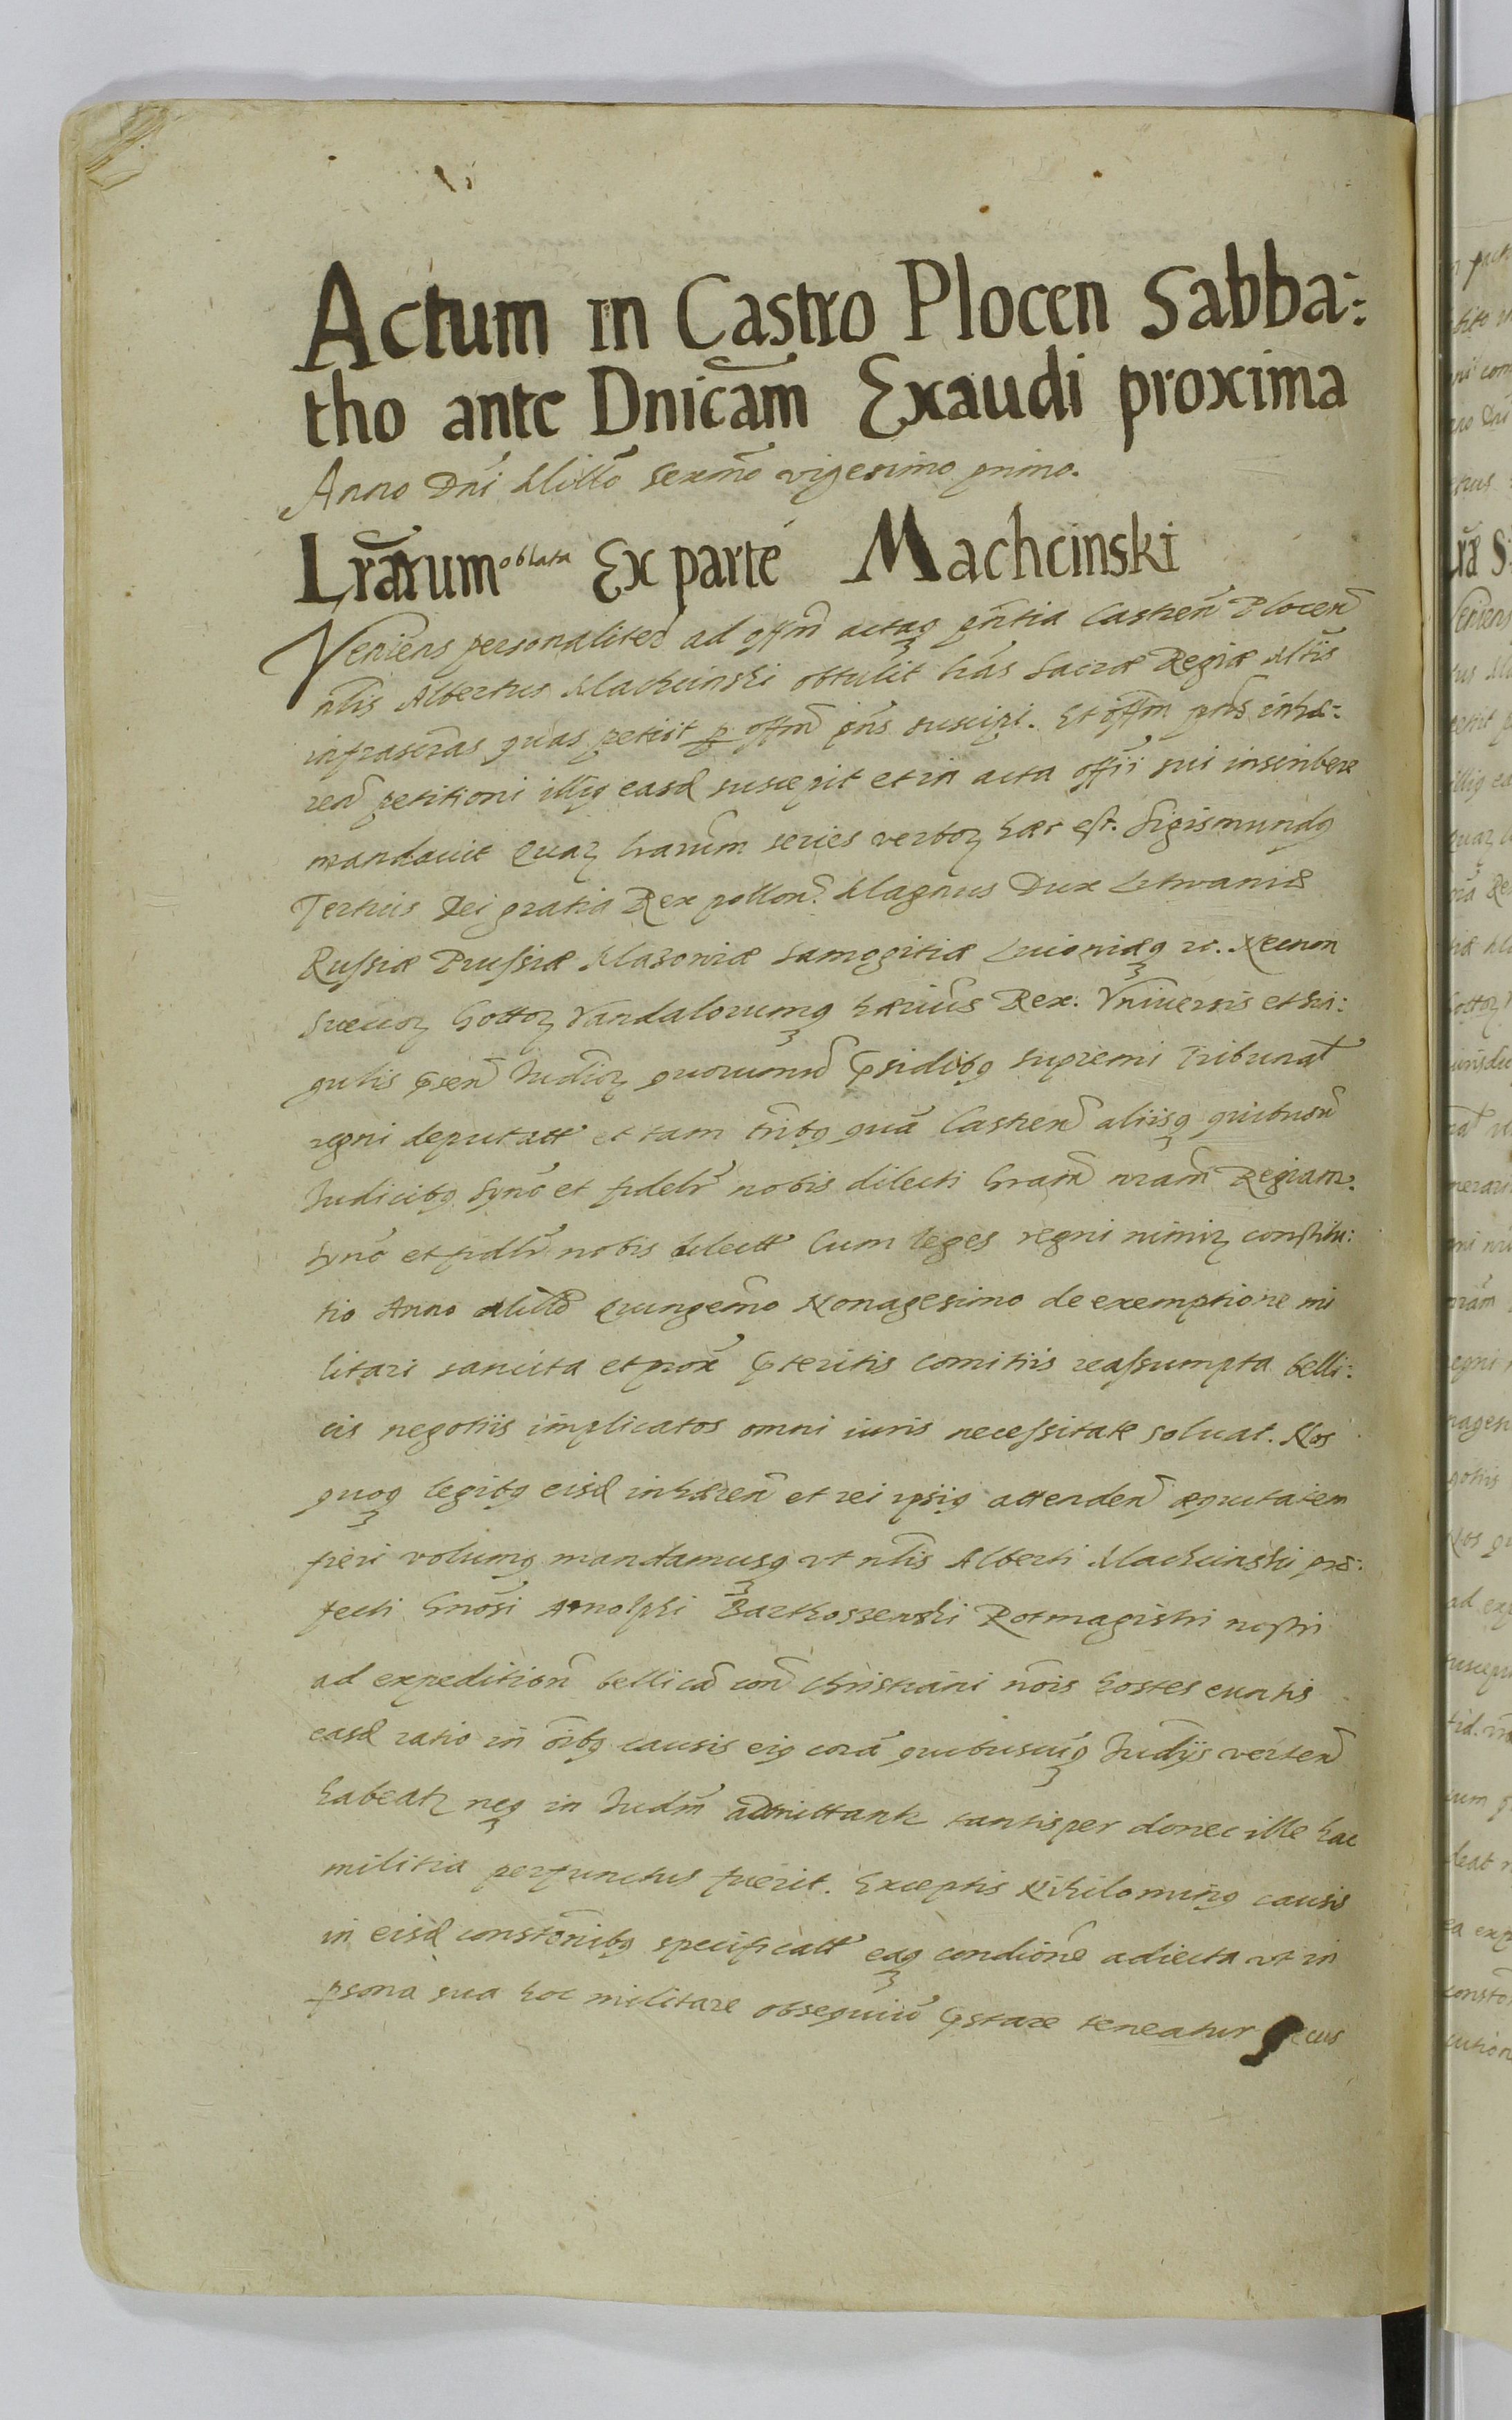 Actum in Castro Plocen Sabba:
tho ante Dnicam Exaudi proxima
Anno Dni Millo Sexmo vigesimo primo.
Lrarum oblata Ex parte Machcinski
Veniens personaliter ad offm actaq pntia Castren Plocen
nlis Albertus Machcinski obtulit lras Sacræ Regiæ Mtis
infrascras quas petiit p offm pns suscipi. Et offm pns inhæ:
ren petitioni illiq easd suscepit et in acta offii sui inscribere
mandauit Quarz lrarum series verborz hæc est. Sigismundq
Tertius Dei gratia Rex pollon. Magnus Dux Litvaniæ
Russiæ Prussiæ Masoviæ Samogitiæ Livoniæq rc. Necnon
Suecorz Gottorz Vandalorumq hærius Rex. Vniuersis et sin:
gulis psen Judiorz quorumuis Psidibq supremi Tribunal
regni deputatt et tam tribq qua Castren aliisq quibusuis
Judicibq Synce et fidelr nobis dilecti Gram nram Regiam.
Synce et fidlr nobis dilectt Cum leges regni nimirz constitu:
tio Anno Millo Quingemo Nonagesimo de exemptione mi
litari sancita et prox pteritis comitiis reassumpta belli:
cis negotiis implicatos omni iuris necessitate soluat. Nos
quoq legibq eisd inhæren et rei ipsiq attenden æquitatem
fieri volumq mandamusq vt nlis Alberti Machcinski pro:
fecti Gnosi Arnolphi Barthoszewski Rotmagistri nostri
ad expedition bellica con Christiani nois hostes euntis
easd ratio in oibq causis eiq cora quibuscuq Judiis verten
habeatz neq in Judm admittantz tantisper donec ille hac
militia perfunctus fuerit. Exceptis Nihilominq causis
in eisd constonibq specificatt eaq condione adiecta vt in
psona sua hoc militare obsequiu pstare teneatur Secus